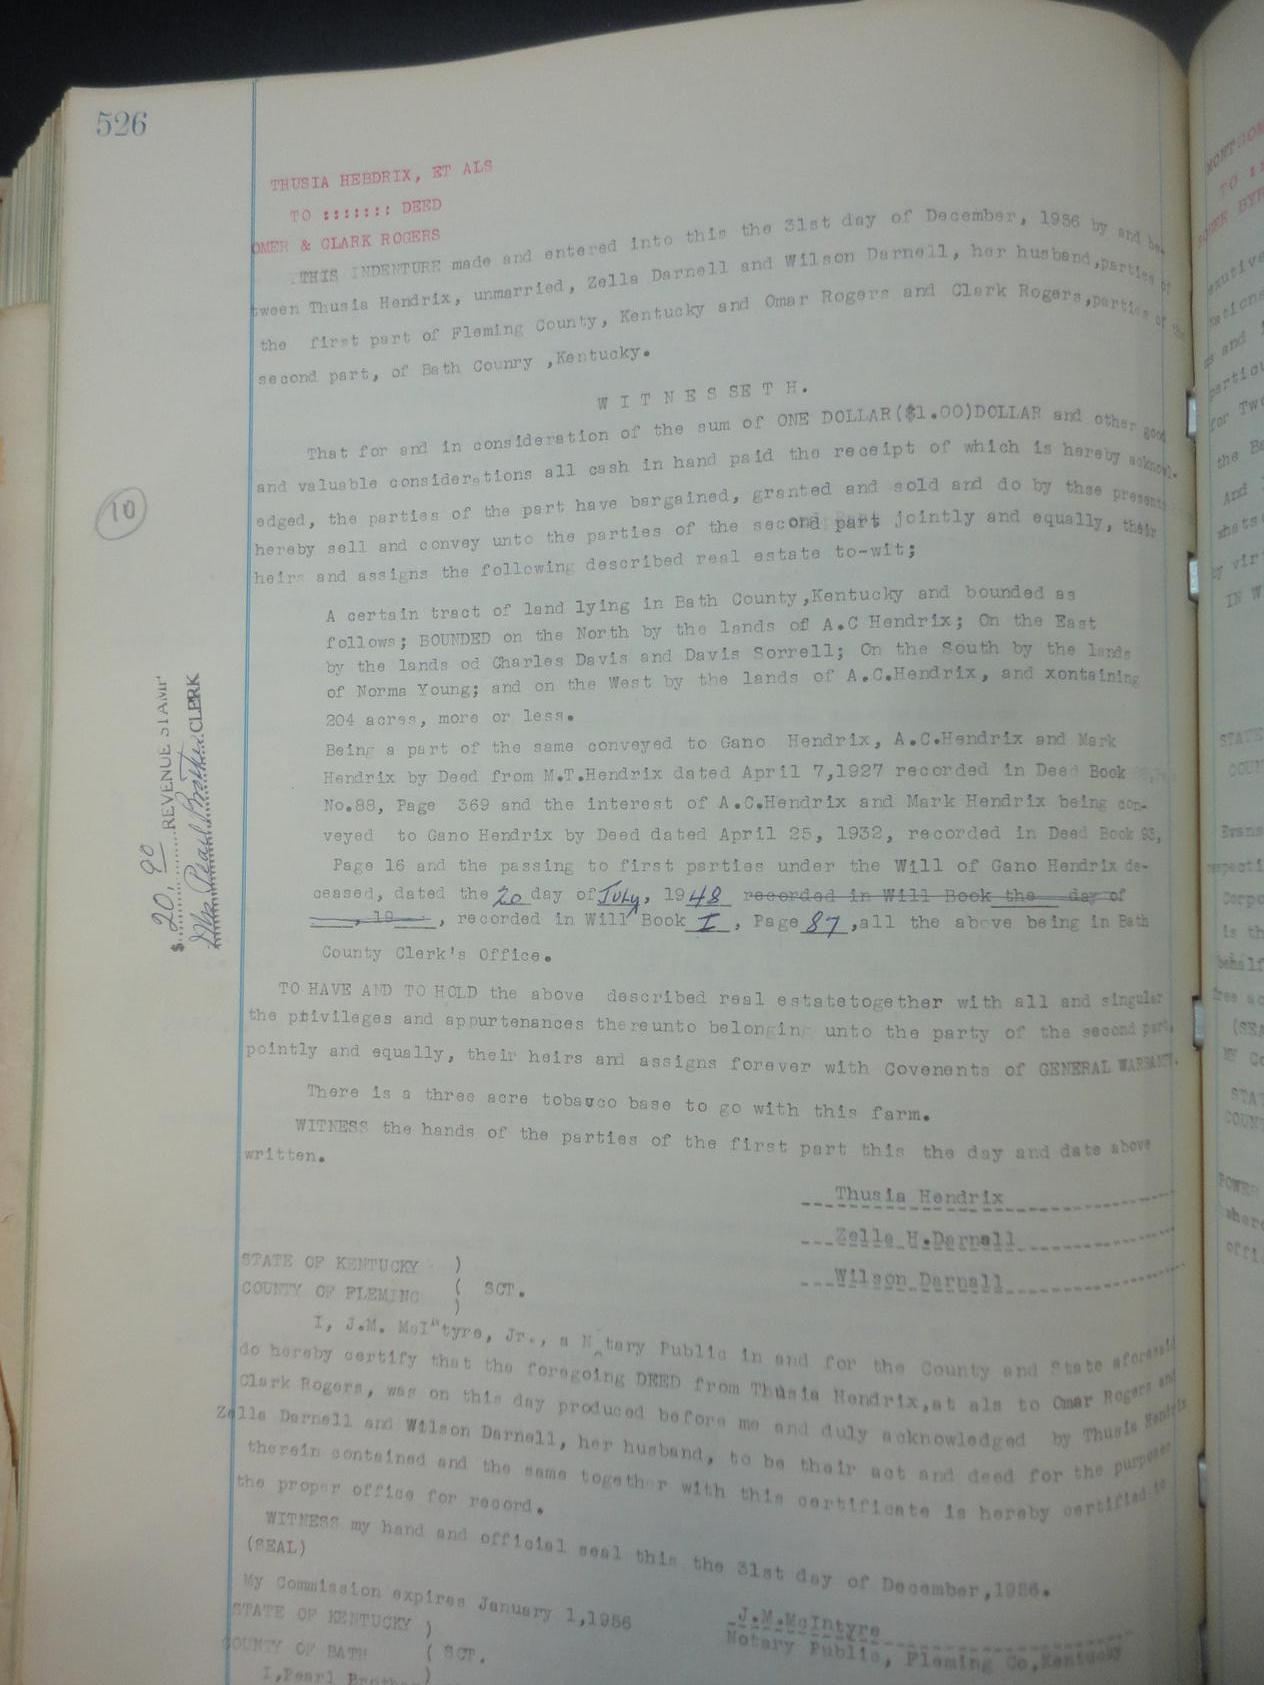 526
THUSIA HEBDRIX, ET ALS
TO ::::::: DEED
OMER & CLARK ROGERS
THIS INDENTURE made and entered into this the 31st day of December, 1956 by and be-
tween Thusia Hendrix, unmarried, Zella Darnell and Wilson Darnell, her husband,parties of
the first part of Fleming County, Kentucky and Omar Rogers and Clark Rogers,parties of the
second part, of Bath Counry ,Kentucky.
W I T N E S SE T H.
That for and in consideration of the sum of ONE DOLLAR($1.00)DOLLAR and other good
and valuable considerations all cash in hand paid the receipt of which is hereby acknowl-
edged, the parties of the part have bargained, granted and sold and do by thse presents
hereby sell and convey unto the parties of the second part jointly and equally, their
heirs and assigns the following described real estate to-wit;
10
A certain tract of land lying in Bath County,Kentucky and bounded as
follows; BOUNDED on the North by the lands of A.C Hendrix; On the East
by the lands od Charles Davis and Davis Sorrell; On the South by the lands
of Norma Young; and on the West by the lands of A.C.Hendrix, and xontaining
204 acres, more or less.
Being a part of the same conveyed to Gano Hendrix, A.C.Hendrix and Mark
Hendrix by Deed from M.T.Hendrix dated April 7,1927 recorded in Deed Book
No.88, Page 369 and the interest of A.C.Hendrix and Mark Hendrix being con-
veyed to Gano Hendrix by Deed dated April 25, 1932, recorded in Deed Book 93,
Page 16 and the passing to first parties under the Will of Gano Hendrix de-
ceased, dated the 20 day of July, 1948 recorded in Will Book the day of
, 19 , recorded in Will Book I , Page 87 ,all the above being in Bath
County Clerk's Office.
$ 20.90 REVENUE STAMP
Mrs Pearl Brother CLERK
TO HAVE AND TO HOLD the above described real estatetogether with all and singular
the privileges and appurtenances thereunto belonging unto the party of the second part,
pointly and equally, their heirs and assigns forever with Covenents of GENERAL WARRANTY.
There is a three acre tobacco base to go with this farm.
WITNESS the hands of the parties of the first part this the day and date above
written.
Thusia Hendrix
Zella H.Darnell
Wilson Darnall
STATE OF KENTUCKY )
COUNTY OF FLEMING ( SCT.
)
I, J.M. McIntyre, Jr., a N tary Public in and for the County and State aforesaid
do hereby certify that the foregoing DEED from Thusia Hendrix,et als to Omar Rogers and
Clark Rogers, was on this day produced before me and duly acknowledged by Thusia Hendrix
Zella Darnell and Wilson Darnell, her husband, to be their act and deed for the purposes
therein contained and the same together with this certificate is hereby certified to
the proper office for record.
WITNESS my hand and official seal this the 31st day of December,1956.
(SEAL)
My Commission expires January 1,1956
J.M.McIntyre
Notary Public, Fleming Co,Kentucky
STATE OF KENTUCKY )
COUNTY OF BATH ( SCT.
I,Pearl )